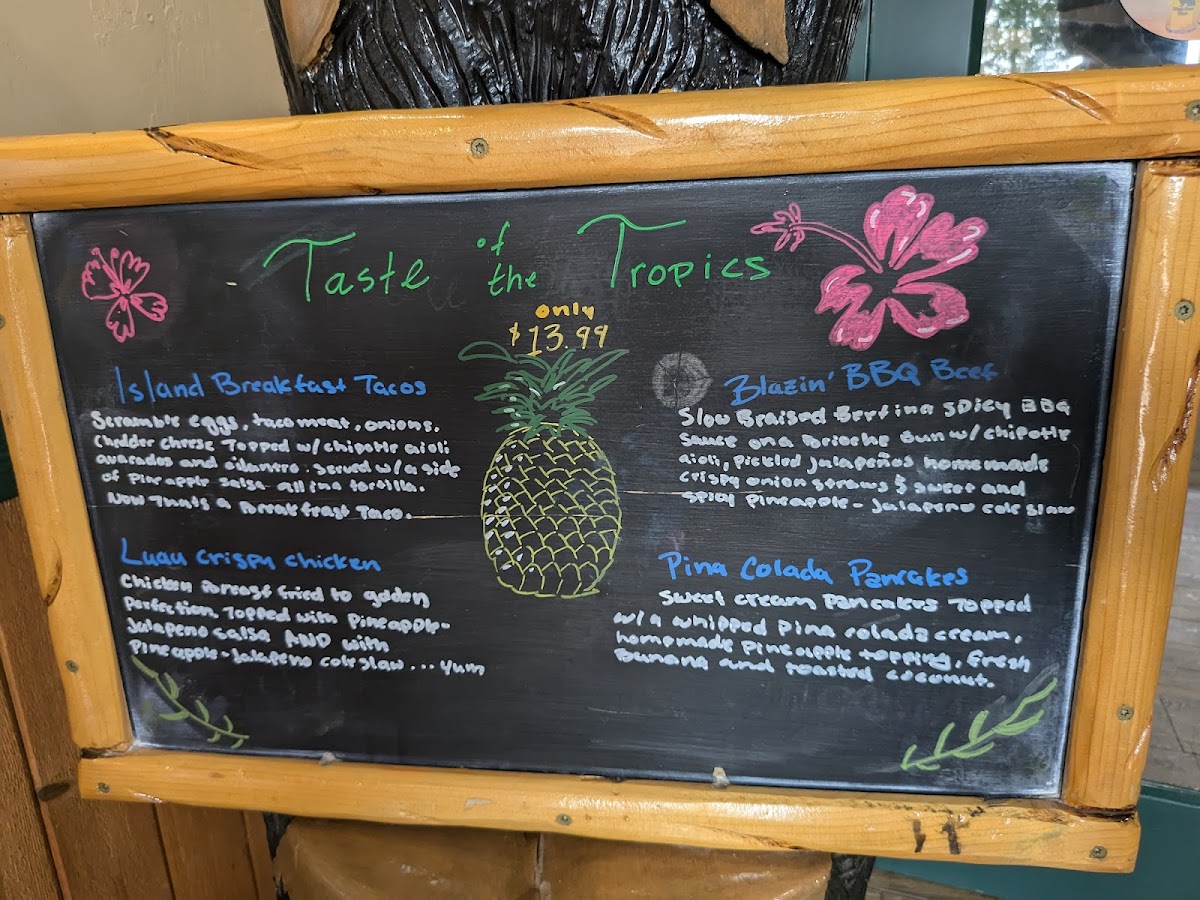 Taste of the Tropics
only
$13.99
Island Breakfast Tacos
Scramble eggs, taco meat, onions,
Chedder cheese Topped w/ chipotle aioli
avacados and cilantro. Served w/ a side
of pineapple salsa all in a tortilla.
Now Thats a Breakfast Taco.
Luau Crispy Chicken
Chicken Breast fried to golden
Perfection, Topped with Pineapple-
Jalapeno salsa AND with
Pineapple-Jalapeno coleslaw ... Yum
Blazin' BBQ Beef
Slow Braised Beef in a Spicy BBQ
Sauce on a Brioche Bun w/ chipotle
aioli, pickled jalapeños homemade
crispy onion straws & sweet and
spicy pineapple - jalapeno coleslaw
Pina Colada Pancakes
Sweet cream pancakes Topped
w/ a whipped pina colada cream,
homemade pineapple topping, fresh
Banana and toasted coconut.